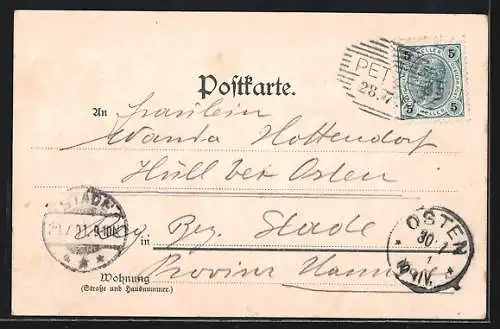 5 HELLER 5
5 HELLER 5
PET
28.
Postkarte.
An Fräulein
Wanda Hottendorf
Hüll bei Osten
STADE
9-10
Bez. Stade
in
Provinz Hannover
OSTEN
30
Wohnung
(Straße und Hausnummer.)